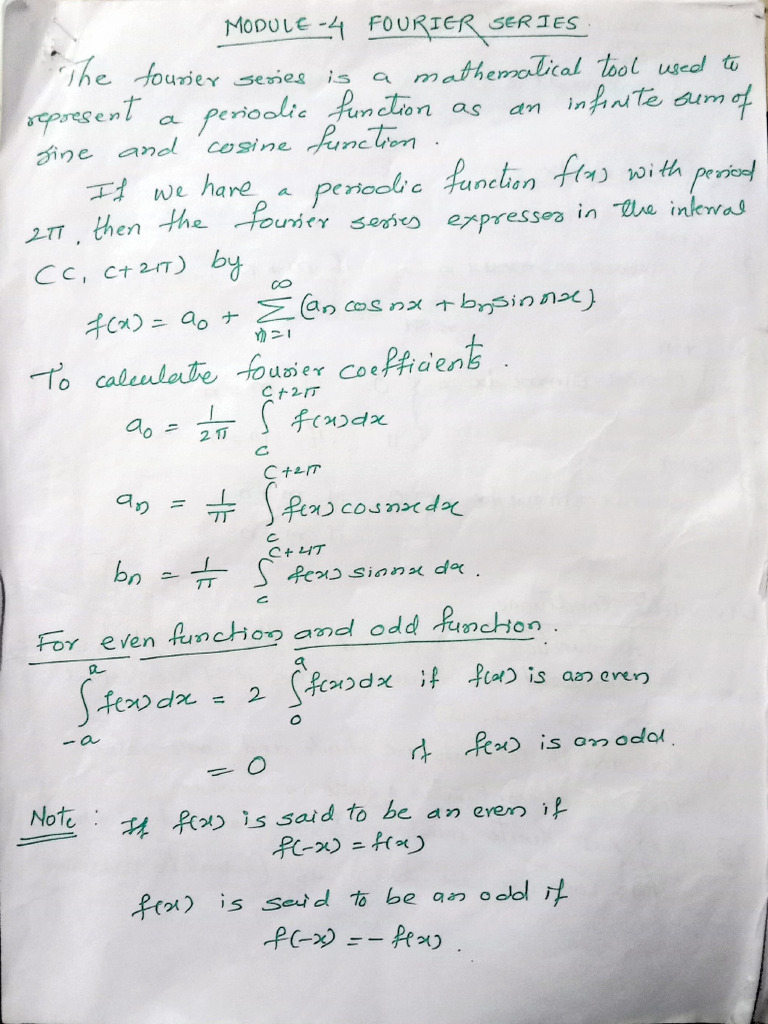 MODULE-4 FOURIER SERIES.
The fourier series is a mathematical tool used to
represent a periodic function as an infinite sum of
sine and cosine function.
If we have a periodic function f(x) with period
2π, then the fourier series expresses in the interval
(C, C+2π) by
f(x) = a₀ + ∞ Σ n=1 (an cos nx + bn sin nx)
To calculate fourier coefficients.
a₀ = 1/2π ∫ c C+2π f(x)dx
an = 1/π ∫ c C+2π f(x) cos nx dx
bn = 1/π ∫ c C+2π f(x) sin nx dx.
For even function and odd function.
∫ -a a f(x)dx = 2 ∫ 0 a f(x)dx if f(x) is an even
= 0 if f(x) is an odd.
Note : If f(x) is said to be an even if
f(-x) = f(x)
f(x) is said to be an odd if
f(-x) = - f(x).